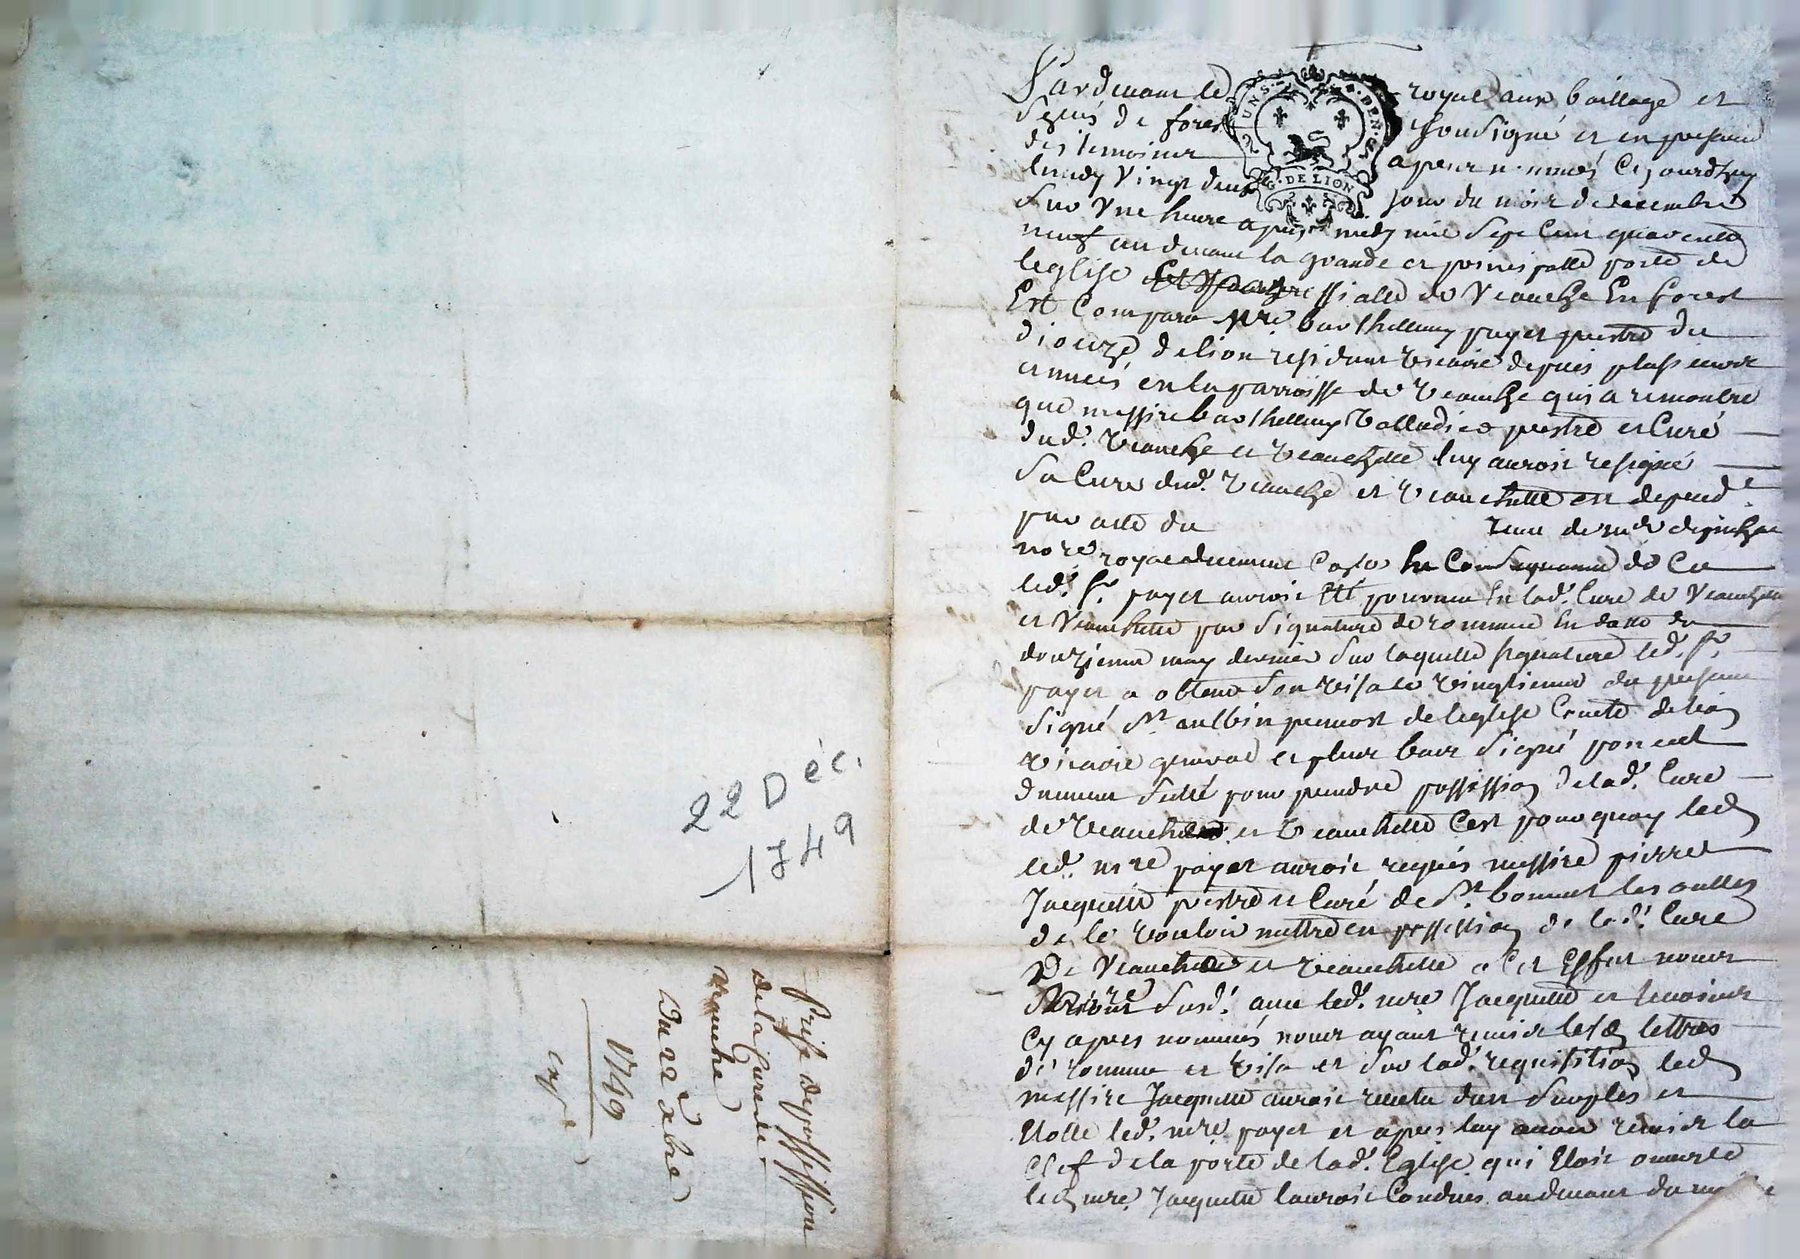 22 Déc.
1749
Prise de possession
de la Cure de
Veauche
Du 22 xbre
1749
Pardevant le royal aux bailliage et
de forest soussigné et en presence
des temoins apres nommés Cejourdhuy
lundy vingt deux jour du mois de decembre
sur une heure apres midy mil sept cent quarente
neuf au devant la grande et principalle porte de
leglise de Veauche En forest
Est Comparu mre barthellemy payet prestre du
diocize de lion residant vicaire depuis plusieurs
années en la parroisse de Veauche qui a remontré
que messire barthellemy prestre et Curé
dud. Veauche et Veauchette luy auroit resigné
sa Cure dud. Veauche et Veauchette et depend.
par acte du
nore royal
led. sr payet auroit été pourveu En lad. Cure de Veauche
et Veauchette par signature de romme En datte du
douzieme may dernier sur laquelle signature led. sr
payet a obtenu son visa le vingtieme du present
signé st aulbin prevost de leglise de lion
vicaire general et plus bas signé poncet
dument scellé pour prendre possession de lad. Cure
de Veauche et Veauchette Cest pourquoy led
led. mre payet auroit requis messire pierre
Jacquette prestre et Curé de st bonnet les oulles
de le vouloir mettre en possession de lad. Cure
De Veauche et Veauchette a Cet Effet nous
susd. avec led. mre Jacquette et temoins
Cy apres nommés nous ayant remis lesd lettres
de romme et visa et sur lad. requisition led
messire Jacquette auroit revetu dun surplis et
Etolle led. mre payet et apres luy avoir remis la
Clef de la porte de lad. Eglise qui Etoit ouverte
led mre Jacquette lauroit Conduit au devant du
UNS
DEN
G. DE LION